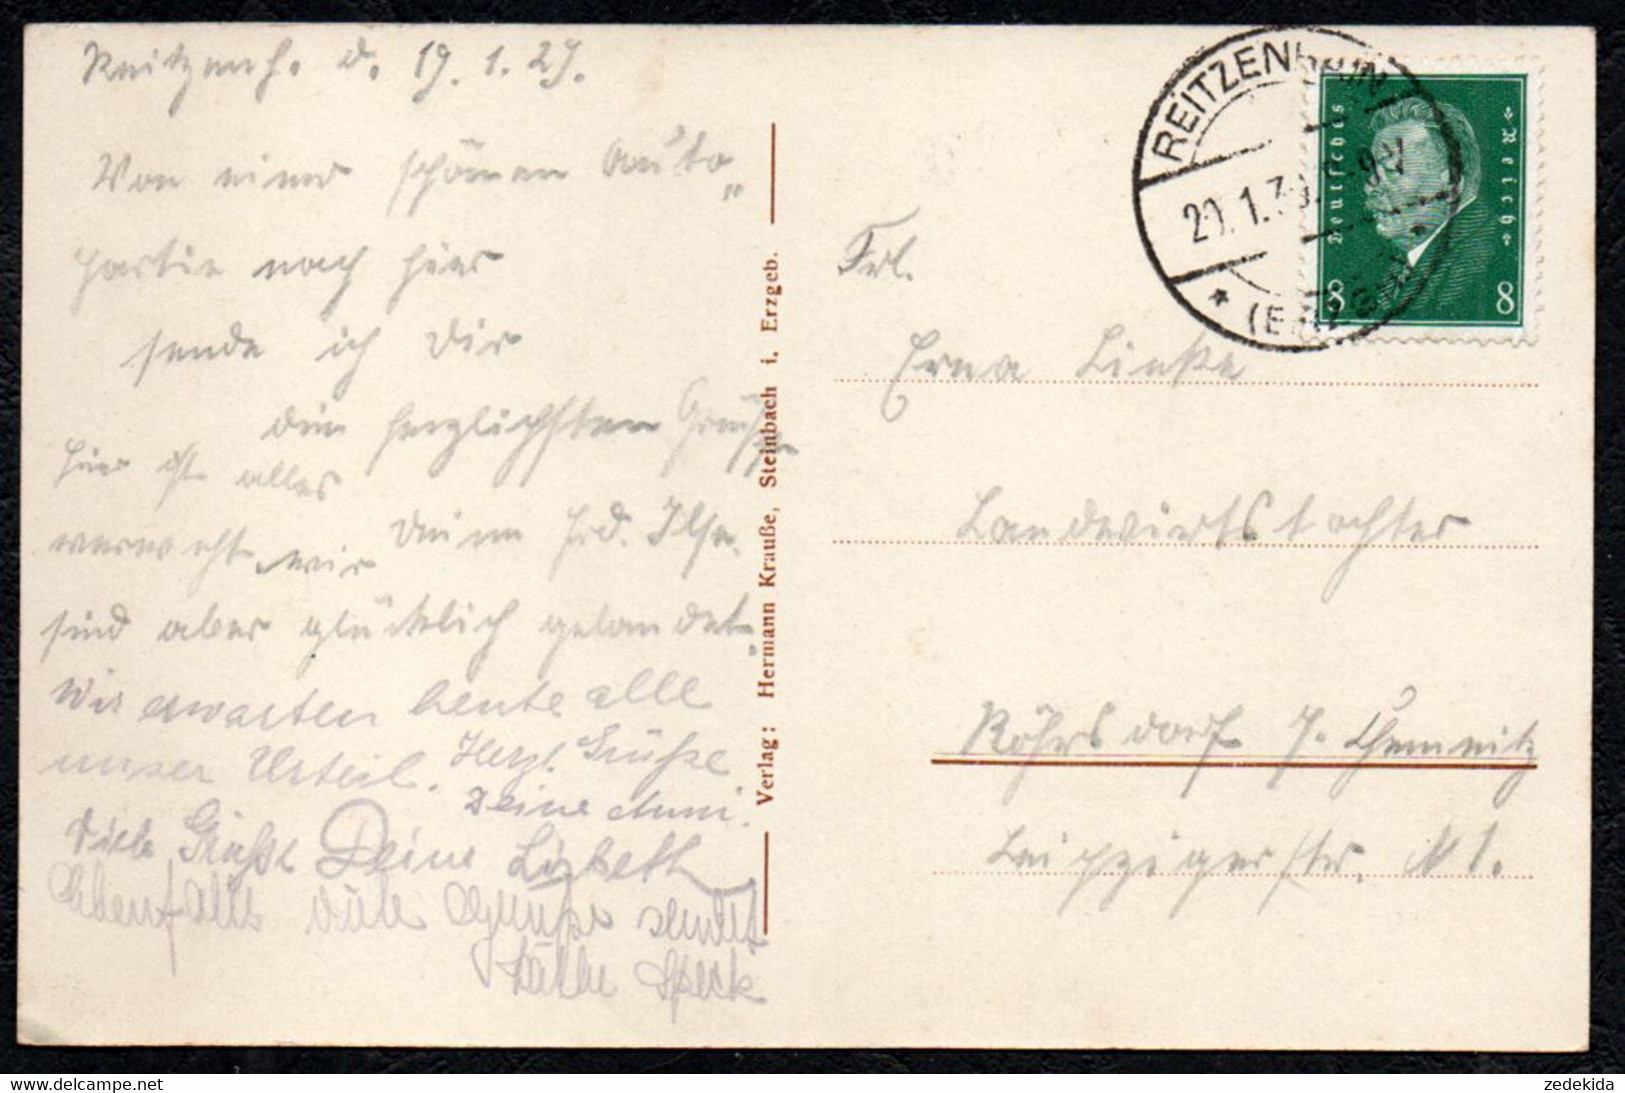 Reitzenh. d. 19.1.29.
Von einer schönen Auto-
partie nach hier
sende ich Dir
die herzlichsten Grüße
Hier ist alles
Deine Frd. Ilse.
verweht, wir
sind aber glücklich gelandet.
Wir erwarten heute alle
unser Urteil. Herzl. Grüße
Deine Anni.
Viele Grüße Deine Lisbeth
Ebenfalls viele Grüße sendet
Käthe Speck
Verlag: Hermann Krauße, Steinbach i. Erzgeb.
REITZENHAIN
20.1.30. 8-9V
* (ERZGEB.)
Deutsches Reich
8 8
Frl.
Erna Linke
Landwirtstochter
Röhrsdorf b. Chemnitz
Leipzigerstr. N 1.
zedekida